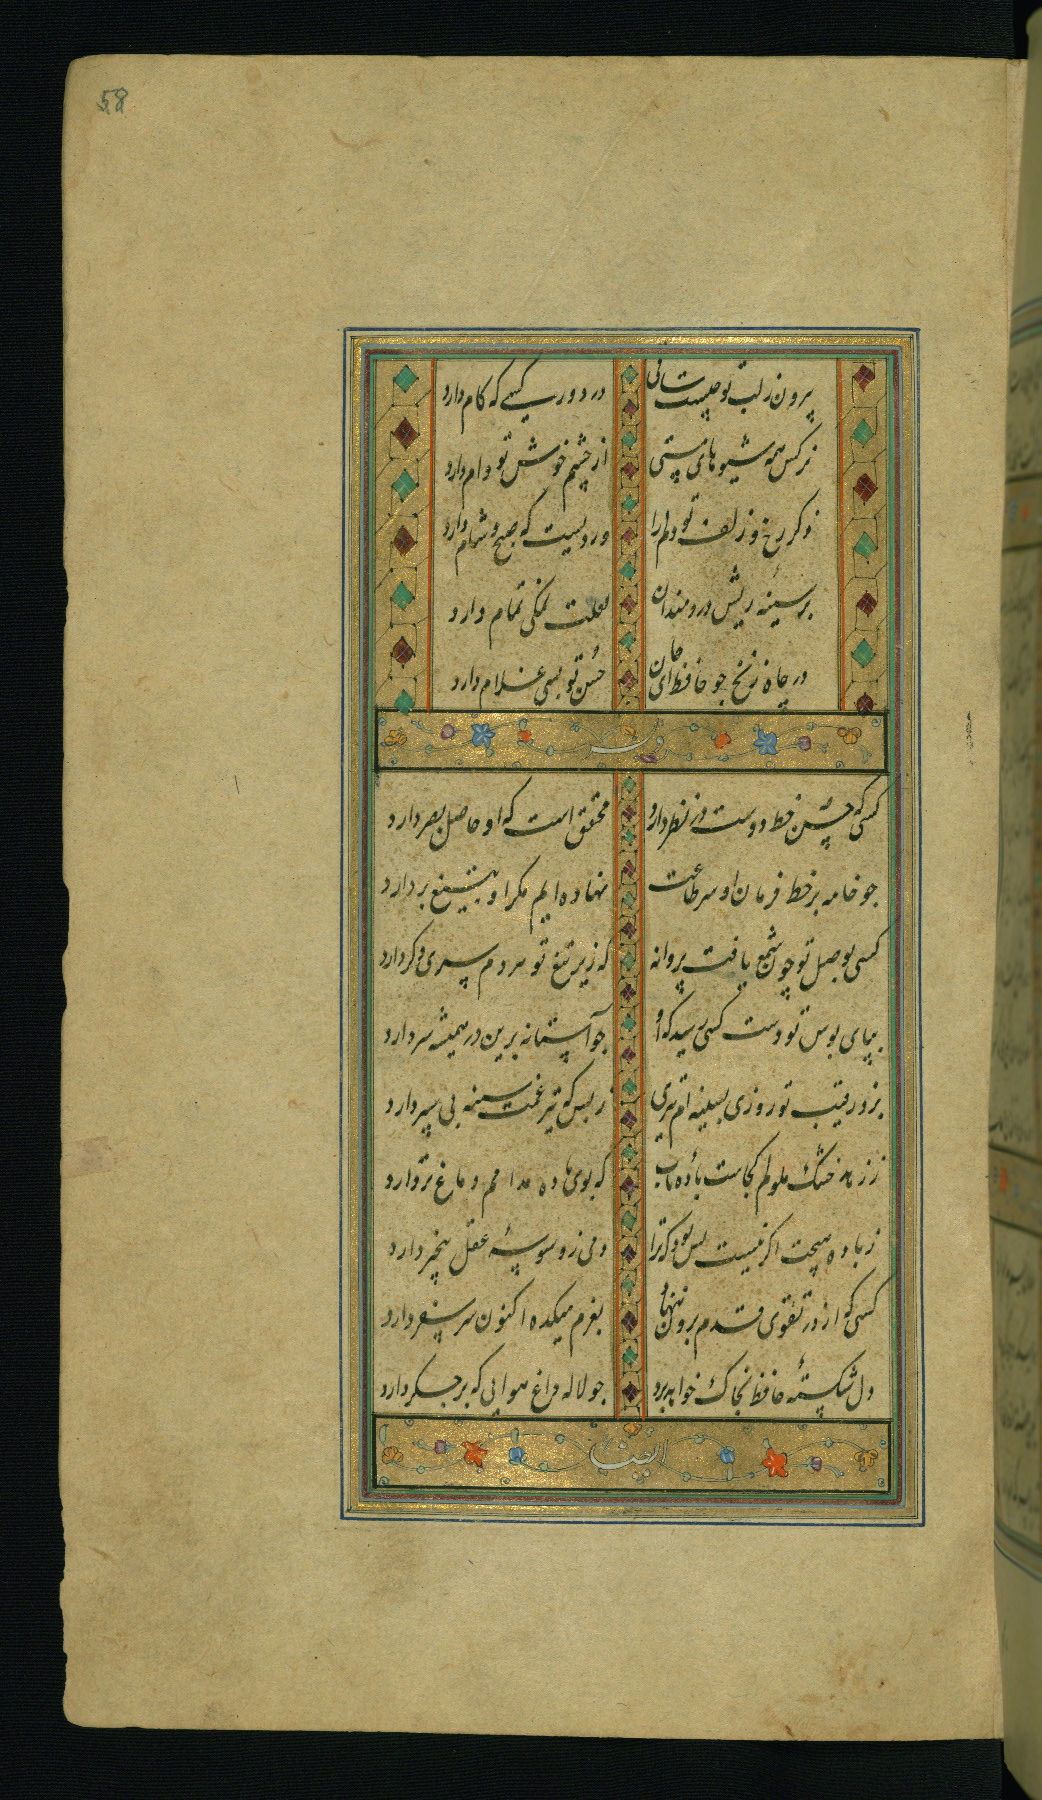 58
بیرون ز لب تو چیست ساقی در دور کسی که کام دارد
نرکس همه شیوهای مستی از چشم خوش تو وام دارد
ذکر رخ و زلف تو دلم را وردیست که صبح و شام دارد
بر سینهٔ ریش دردمندان لعلت نمکی تمام دارد
در چاه زنخ جو حافظ ای جان حسن تو بسی غلام دارد
وله
کسی که حسن خط دوست در نظر دارد محقق است که او حاصل بصر دارد
جو خامه بر خط فرمان او سر طاعت نهاده ایم مکر او بتیغ بردارد
کسی بوصل تو چون شمع یافت پروانه که زیر تیغ تو هر دم سری دکر دارد
بپای بوس تو دست کسی رسید که او جو آستانه برین در همیشه سر دارد
بزد رقیب تو روزی بسینه ام تیری ز بس که تیر غمت سینه بی سپر دارد
ز زهد خشک ملولم کجاست بادهٔ ناب که بوی باده مدامم دماغ تر دارد
ز باده هیچت اکر نیست بس بود که ترا دمی ز وسوسهٔ عقل بیخبر دارد
کسی که از در تقوی قدم برون ننهاد بعزم میکده اکنون سر سفر دارد
دل شکستهٔ حافظ بخاک خواهد برد جو لاله داغ هوایی که بر جکر دارد
ایضا